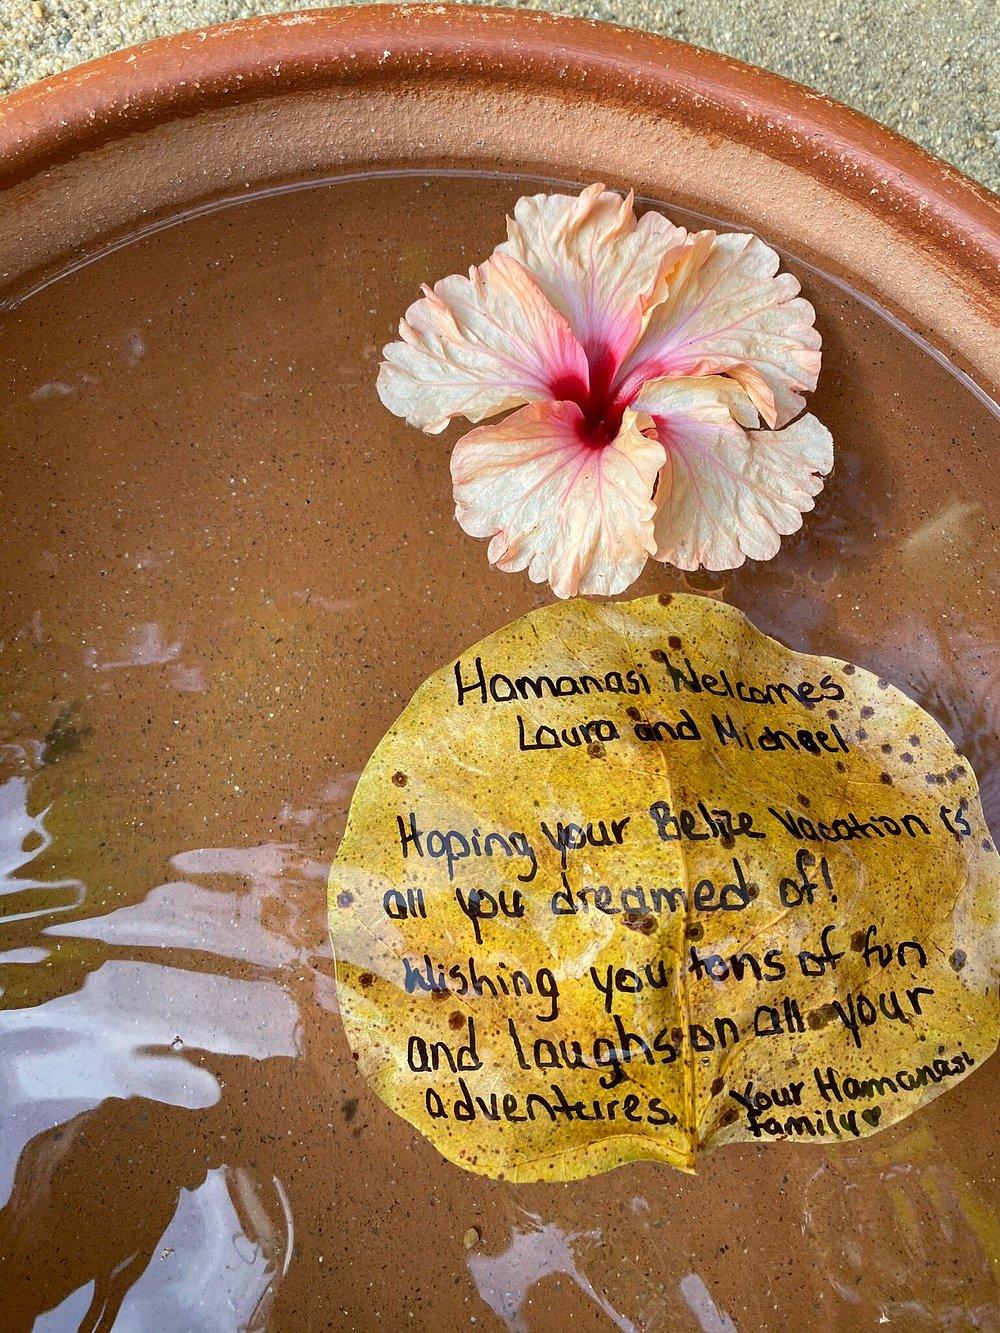 Hamanasi Welcomes
Laura and Michael
Hoping your Belize Vacation is
all you dreamed of!
Wishing you tons of fun
and laughs on all your
adventures.
Your Hamanasi
family♥